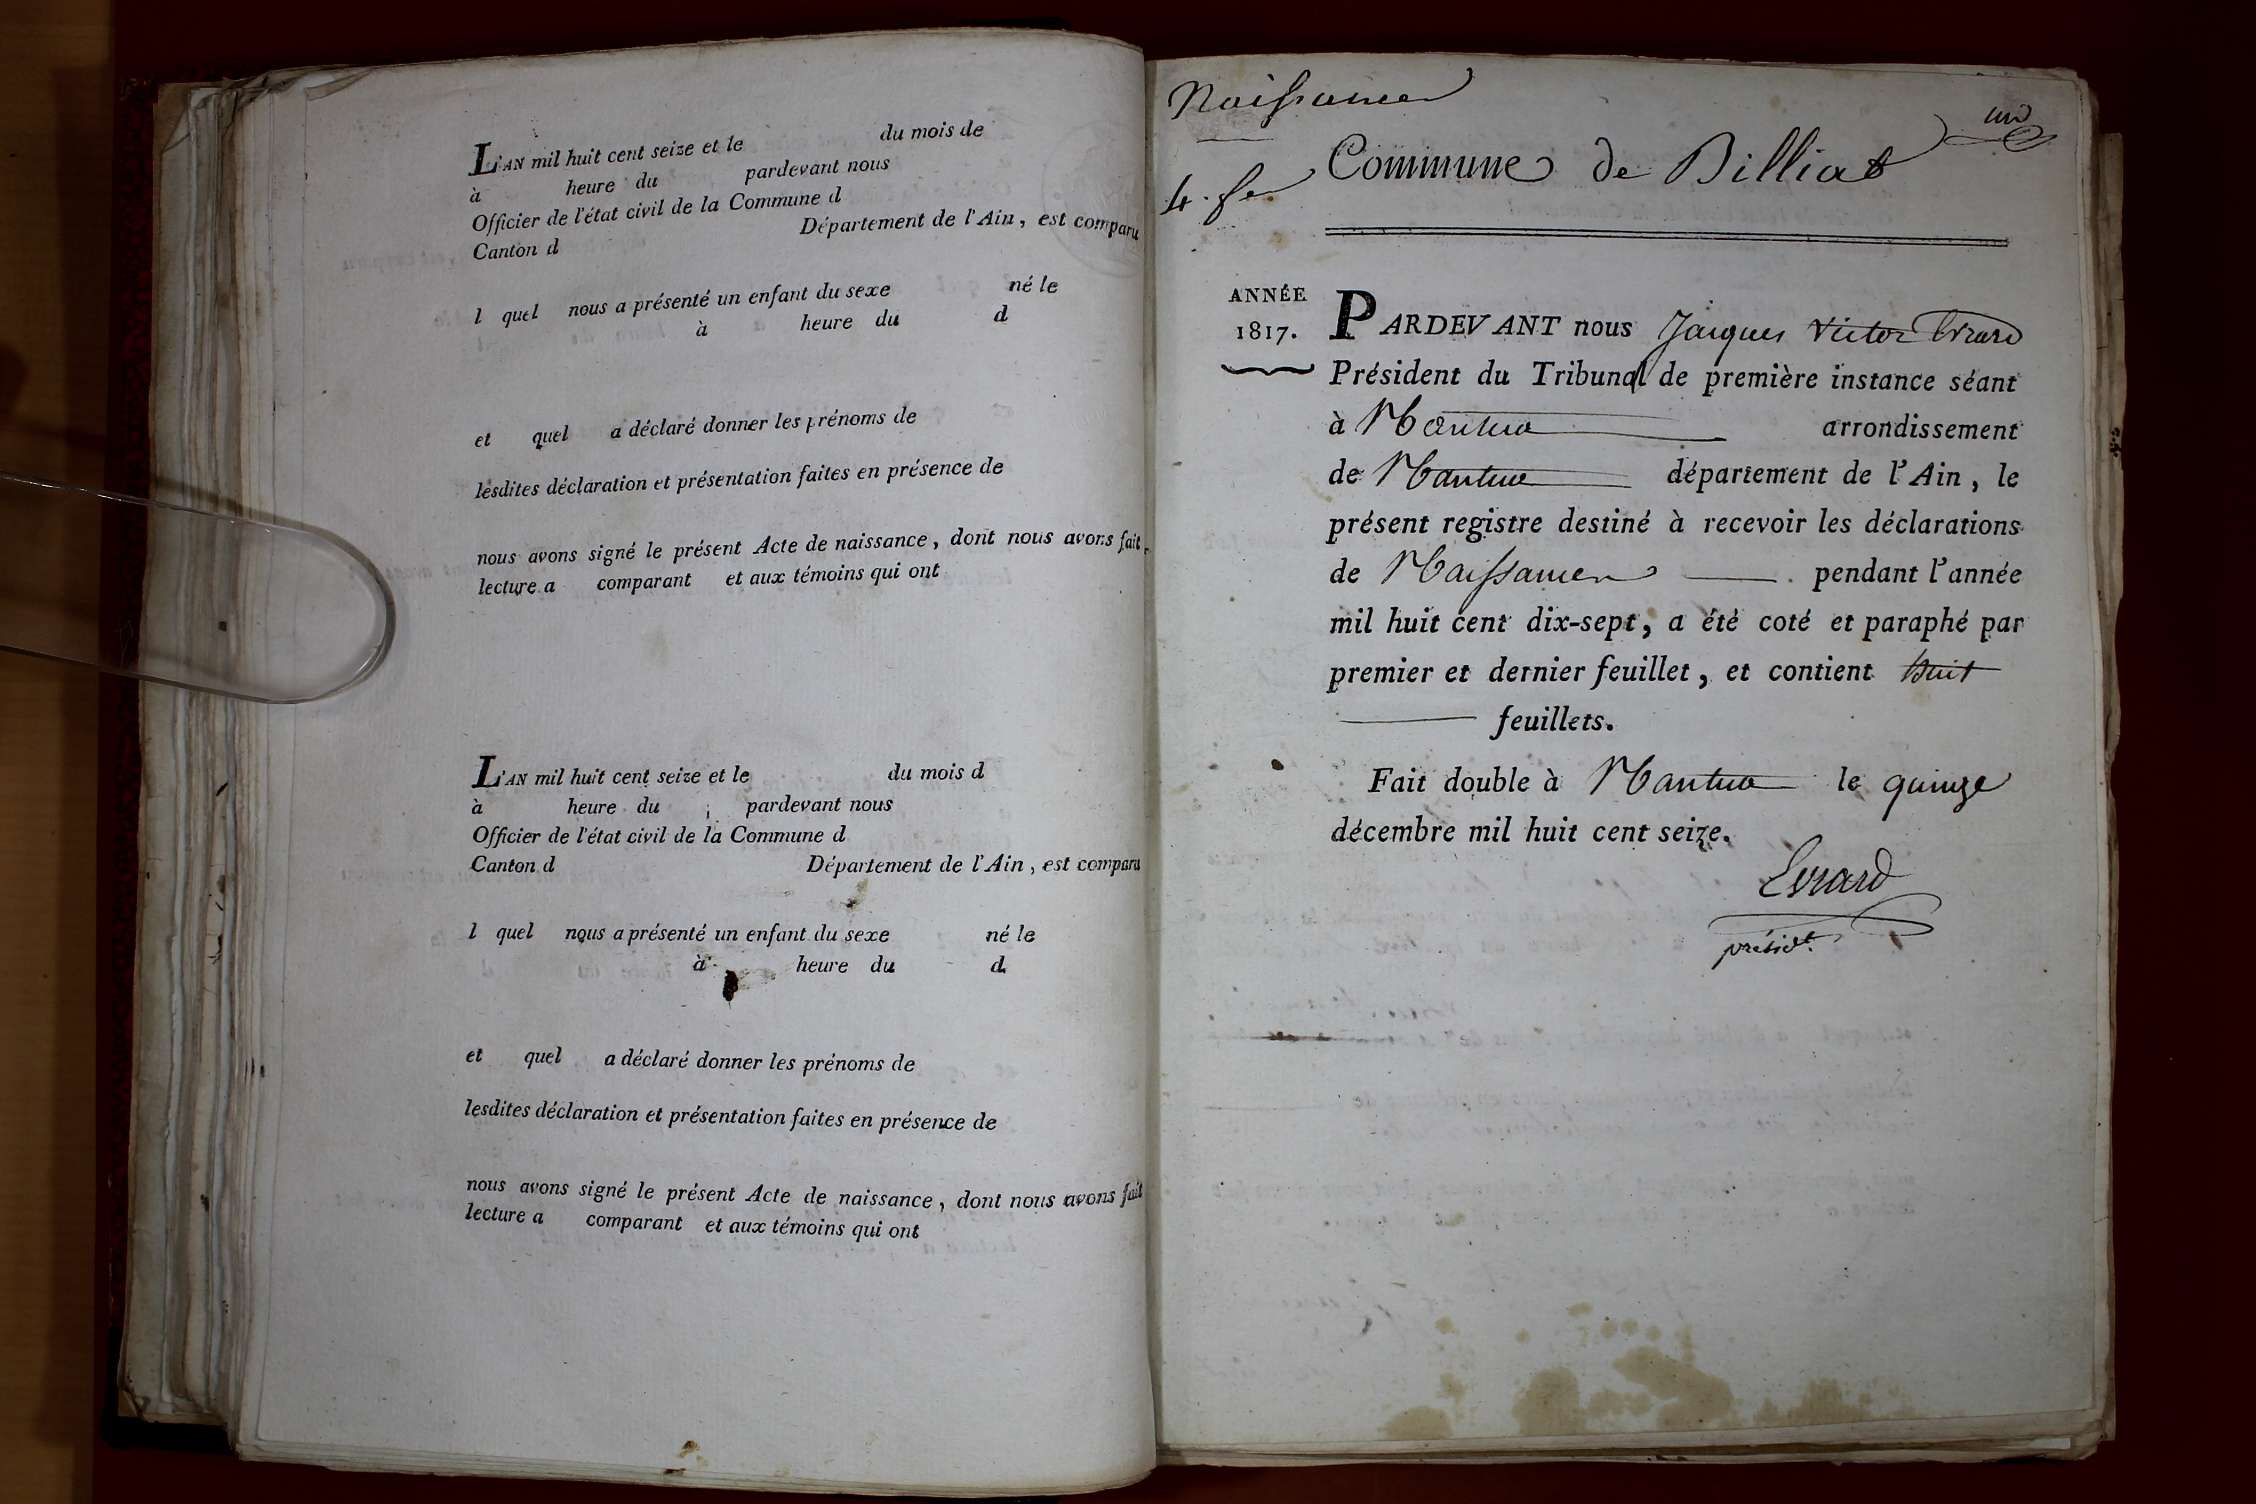 L'AN mil huit cent seize et le du mois de
à heure du pardevant nous
Officier de l'état civil de la Commune d
Canton d Département de l'Ain, est comparu
l quel nous a présenté un enfant du sexe né le
à heure du d
et quel a déclaré donner les prénoms de
lesdites déclaration et présentation faites en présence de
nous avons signé le présent Acte de naissance, dont nous avons fait
lecture a comparant et aux témoins qui ont
L'AN mil huit cent seize et le du mois d
à heure du pardevant nous
Officier de l'état civil de la Commune d
Canton d Département de l'Ain, est comparu
l quel nous a présenté un enfant du sexe né le
à heure du d
et quel a déclaré donner les prénoms de
lesdites déclaration et présentation faites en présence de
nous avons signé le présent Acte de naissance, dont nous avons fait
lecture a comparant et aux témoins qui ont
Naissances
un
Commune de Billiat
4.
ANNÉE
1817.
PARDEVANT nous Jacques Victor Evrard
Président du Tribunal de première instance séant
à Nantua arrondissement
de Nantua département de l'Ain, le
présent registre destiné à recevoir les déclarations
de Naissances pendant l'année
mil huit cent dix-sept, a été coté et paraphé par
premier et dernier feuillet, et contient huit
feuillets.
Fait double à Nantua le quinze
décembre mil huit cent seize.
Evrard
présidt.